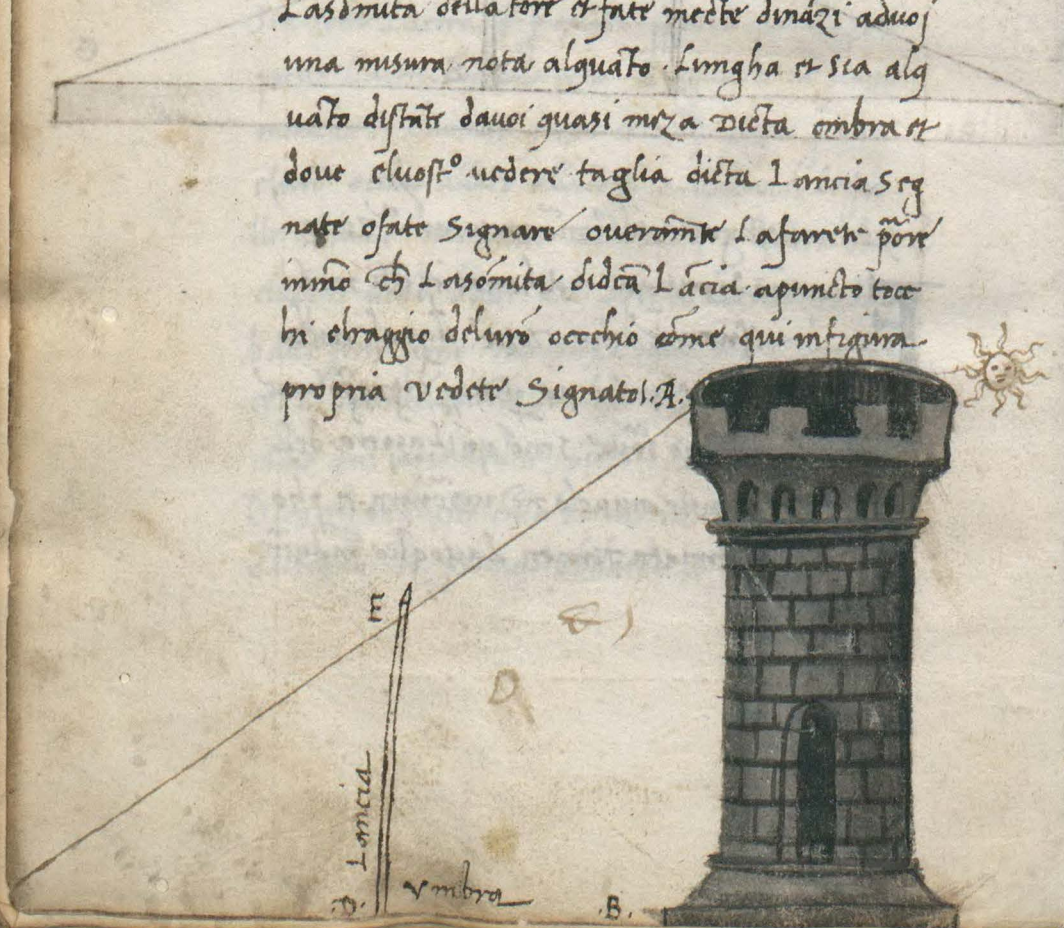 Lasōmita della tore et fate mecte dināzi advoj
una misura nota alquāto . Lungha et sia alq
uāto distāte davoi quasi meza Dicta ombra et
dove elvostº vedere taglia dicta Lancia Seg
nate ofate Signare overamēte Lafarete
Lasōmita Lācia apuncto tocc
hi elraggio delvrō occhio cōme qui infigura.
propria vedete Signato .A.
m
Lancia
.D.
vmbra
.B.
D